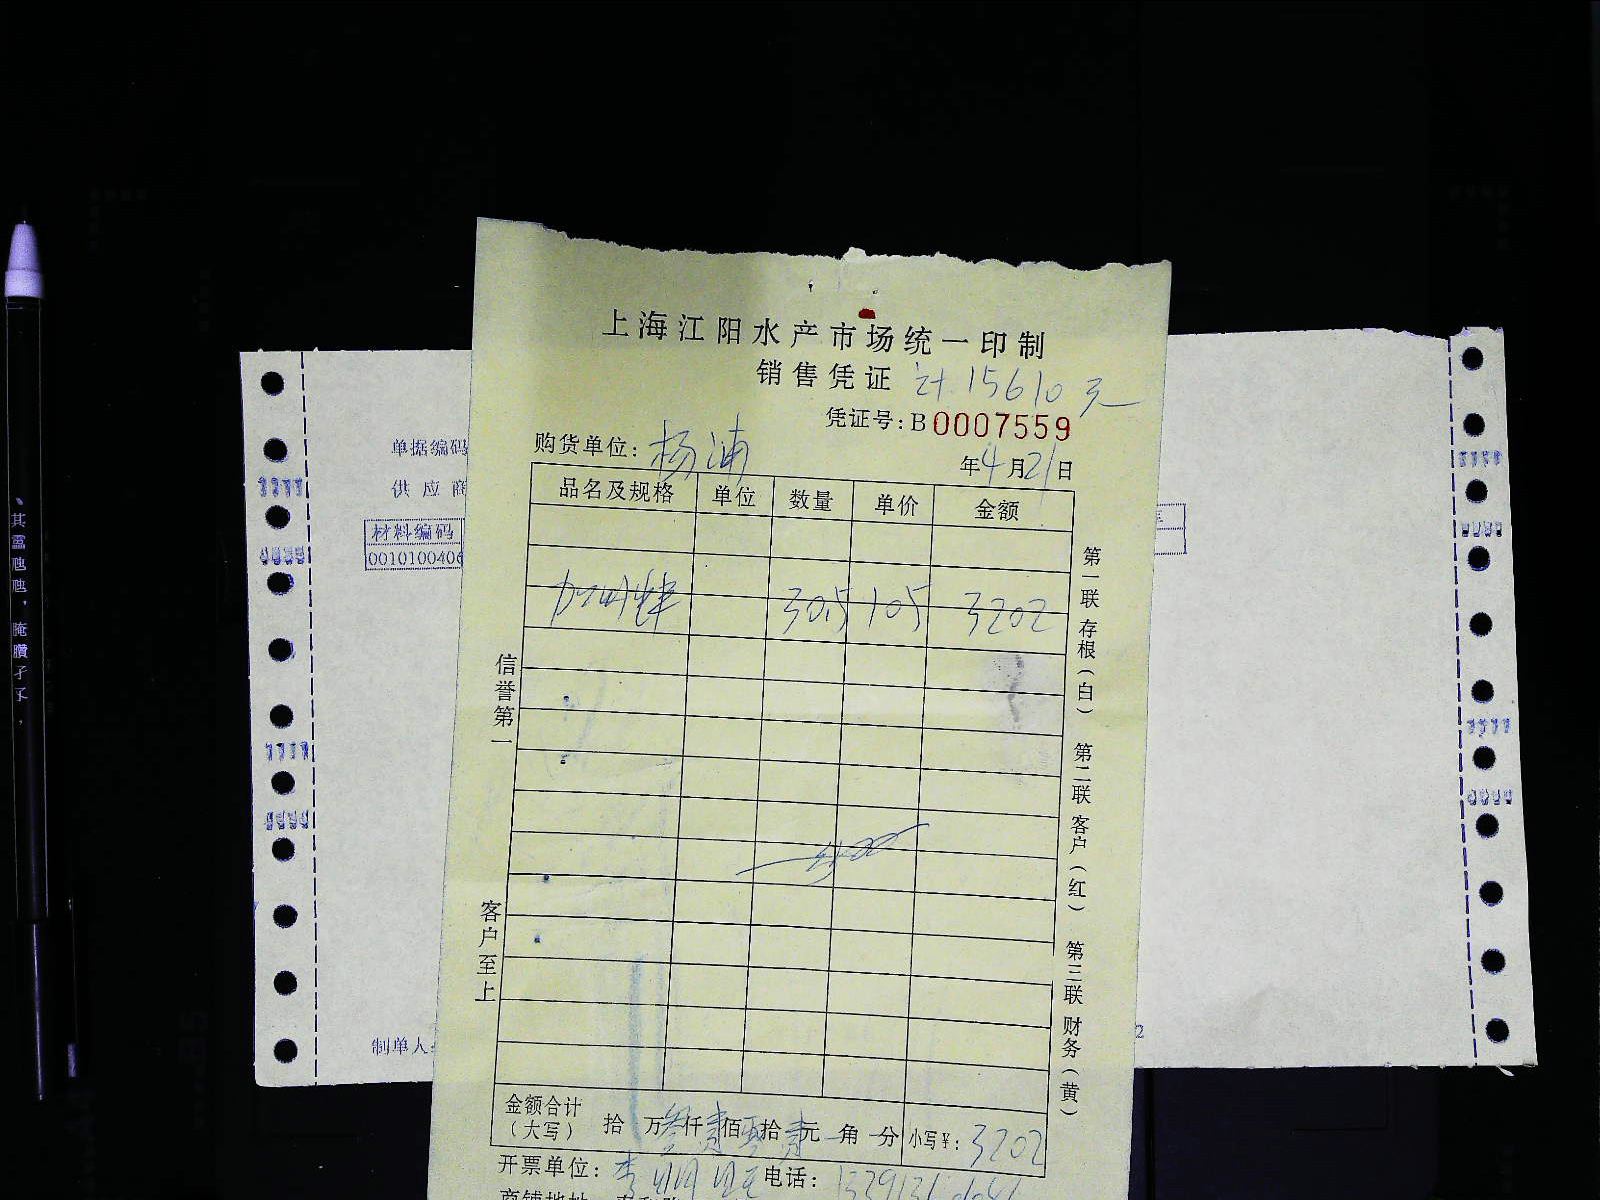 上海江阳水产市场统一印制
销售凭证 计.15610元
凭证号:B0007559
购货单位: 杨浦 年4月21日
品名及规格 单位 数量 单价 金额
加州鲜 30.5 105 3202
信誉第一
客户至上
第一联 存根(白) 第二联 客户(红) 第三联 财务(黄)
金额合计(大写) 拾 万 仟 佰 拾 元 角 分 小写¥: 3202
开票单位: 李 电话:
单据编码
供应商
材料编码
0010100406
制单人: